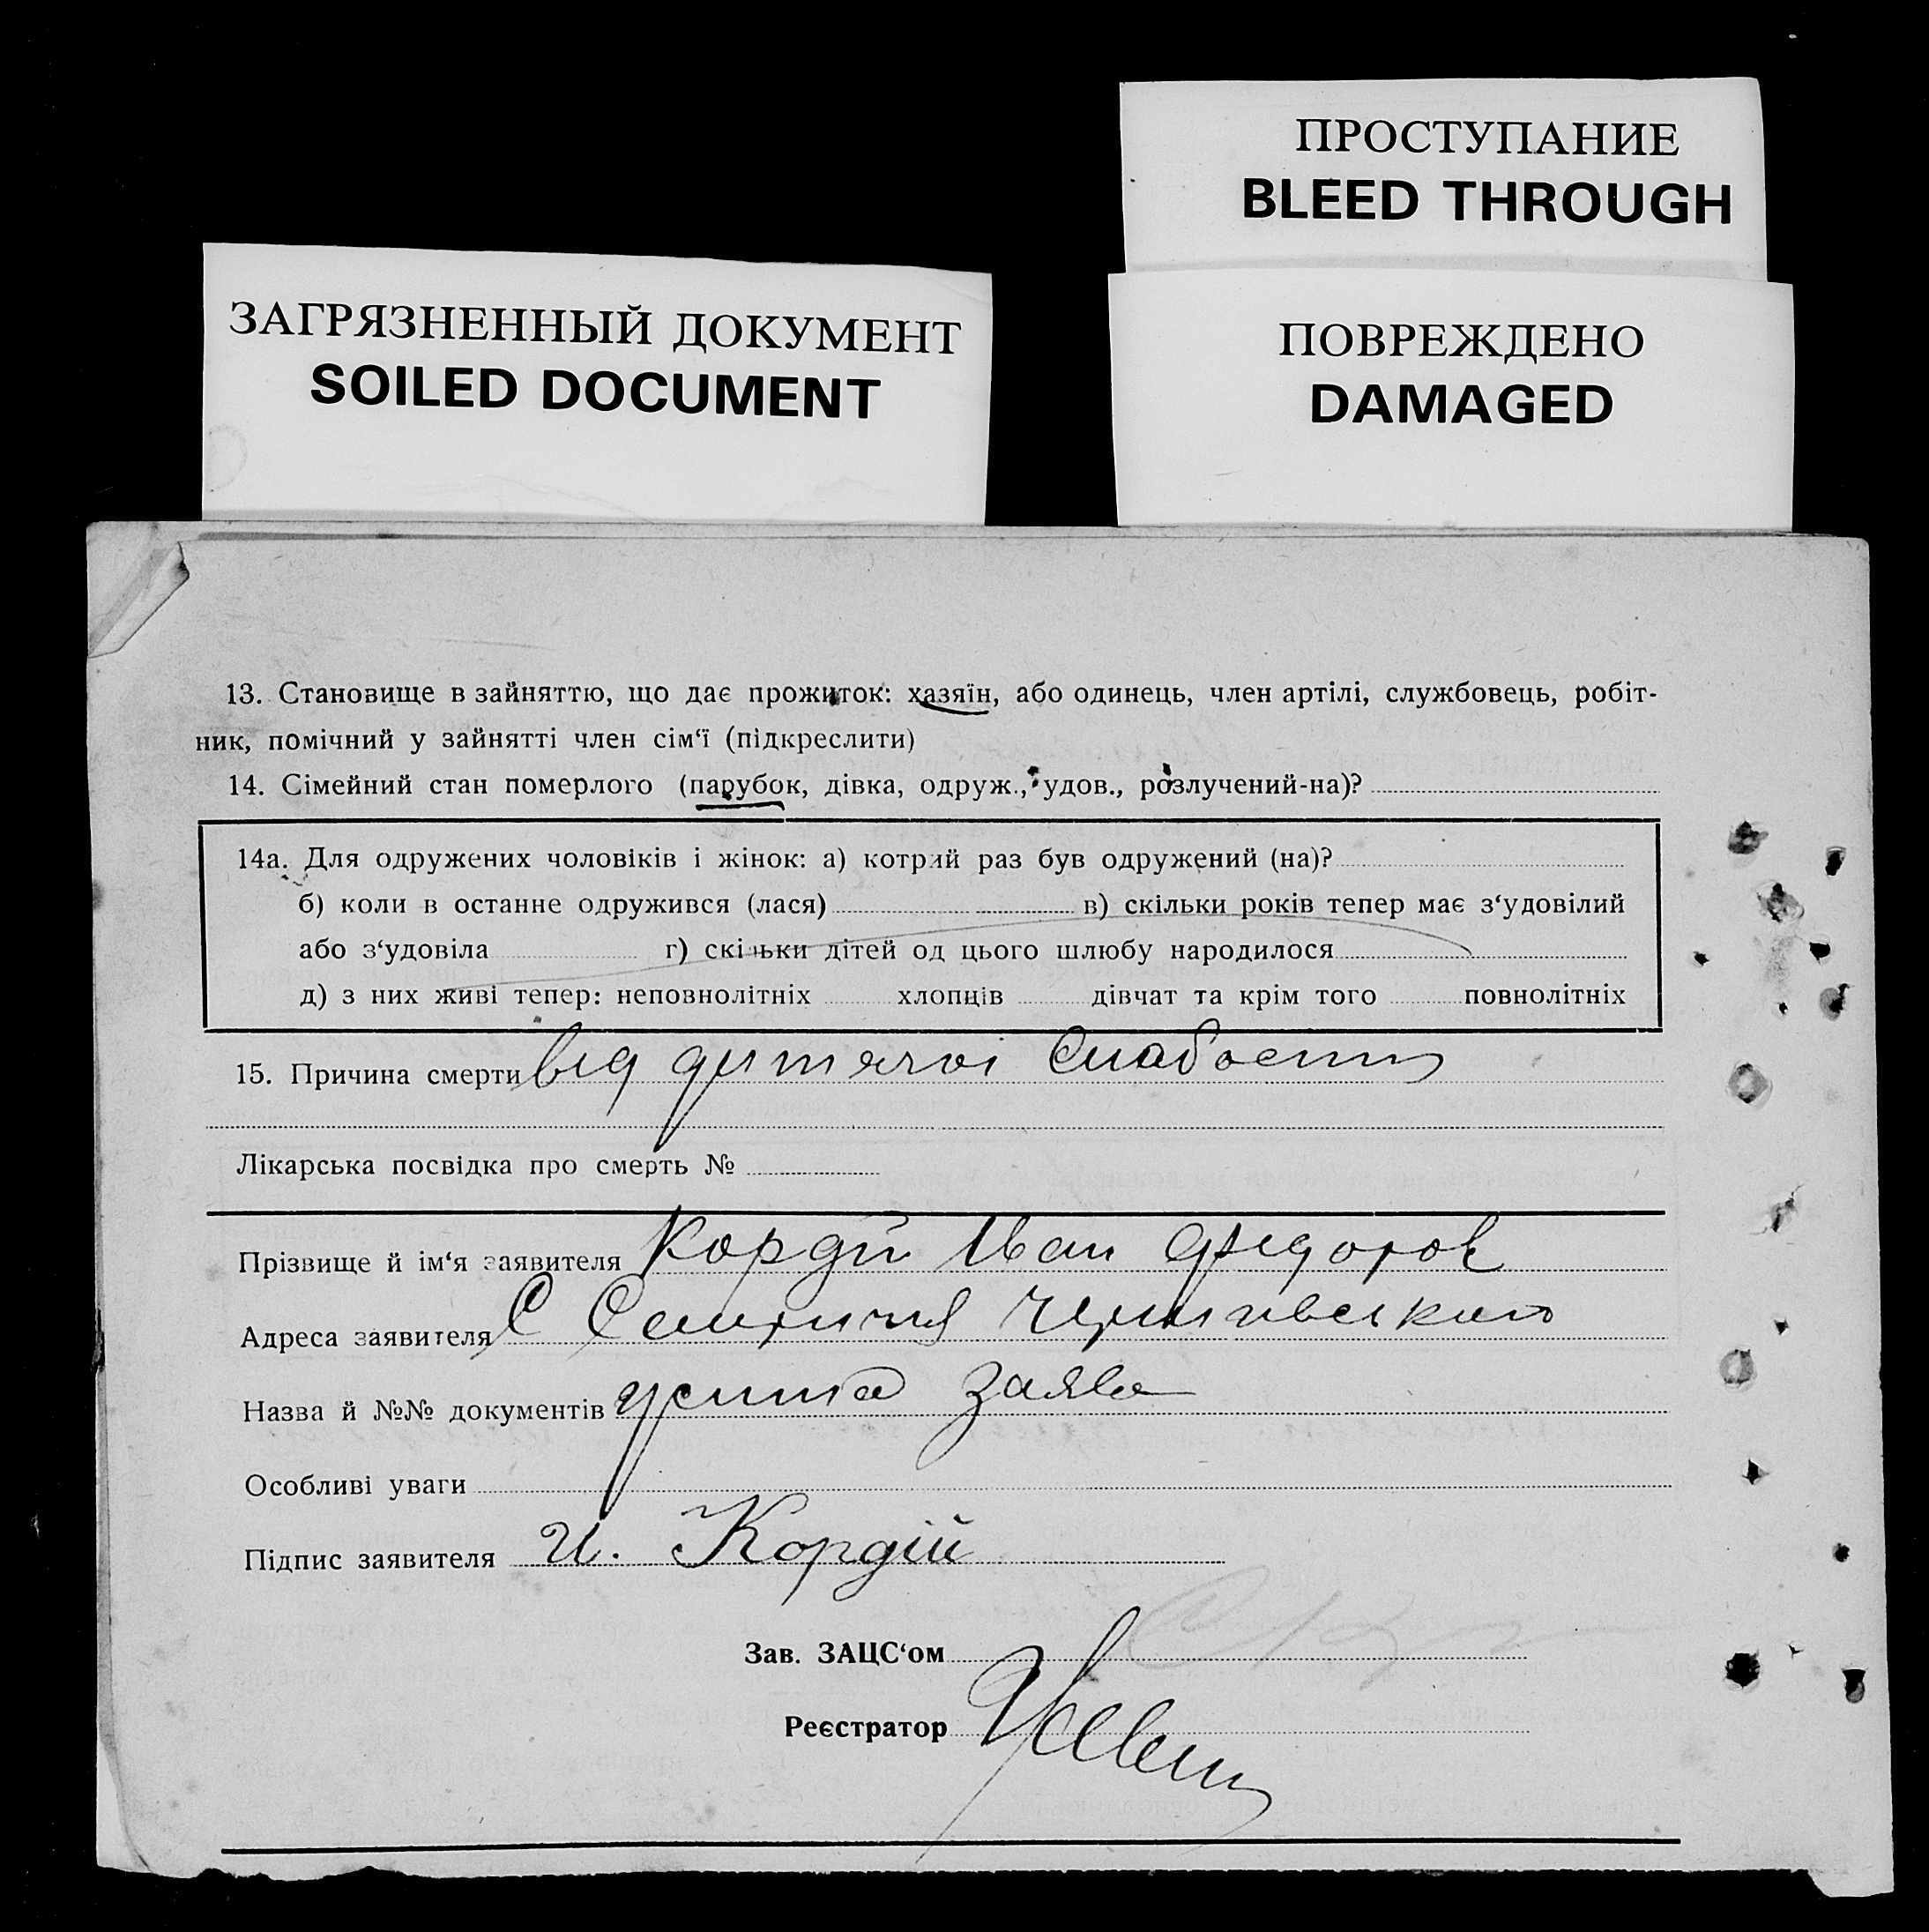 ПРОСТУПАНИЕ
BLEED THROUGH
ЗАГРЯЗНЕННЫЙ ДОКУМЕНТ
SOILED DOCUMENT
ПОВРЕЖДЕНО
DAMAGED
13. Становище в зайняттю, що дає прожиток: хазяїн, або одинець, член артілі, службовець, робіт-
ник, помічний у зайнятті член сім‘ї (підкреслити)
14. Сімейний стан померлого (парубок, дівка, одруж., удов., розлучений-на)?
14а. Для одружених чоловіків і жінок: а) котрий раз був одружений (на)?
б) коли в останне одружився (лася) в) скільки років тепер має з‘удовілий
або з‘удовіла г) скільки дітей од цього шлюбу народилося
д) з них живі тепер: неповнолітніх хлопців дівчат та крім того повнолітніх
15. Причина смерти від дитячої слабости
Лікарська посвідка про смерть №
Прізвище й ім‘я заявителя Кордій Іван Федоров
Адреса заявителя С
Назва й №№ документів усита заява
Особливі уваги
Підпис заявителя И. Кордій
Зав. ЗАЦС‘ом
Реєстратор